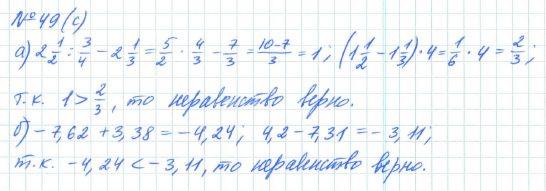 № 49 (с)
а) 2 1/2 : 3/4 - 2 1/3 = 5/2 · 4/3 - 7/3 = (10-7)/3 = 1; (1 1/2 - 1 1/3) · 4 = 1/6 · 4 = 2/3;
т.к. 1 > 2/3, то неравенство верно.
б) -7,62 + 3,38 = -4,24; 4,2 - 7,31 = -3,11;
т.к. -4,24 < -3,11, то неравенство верно.